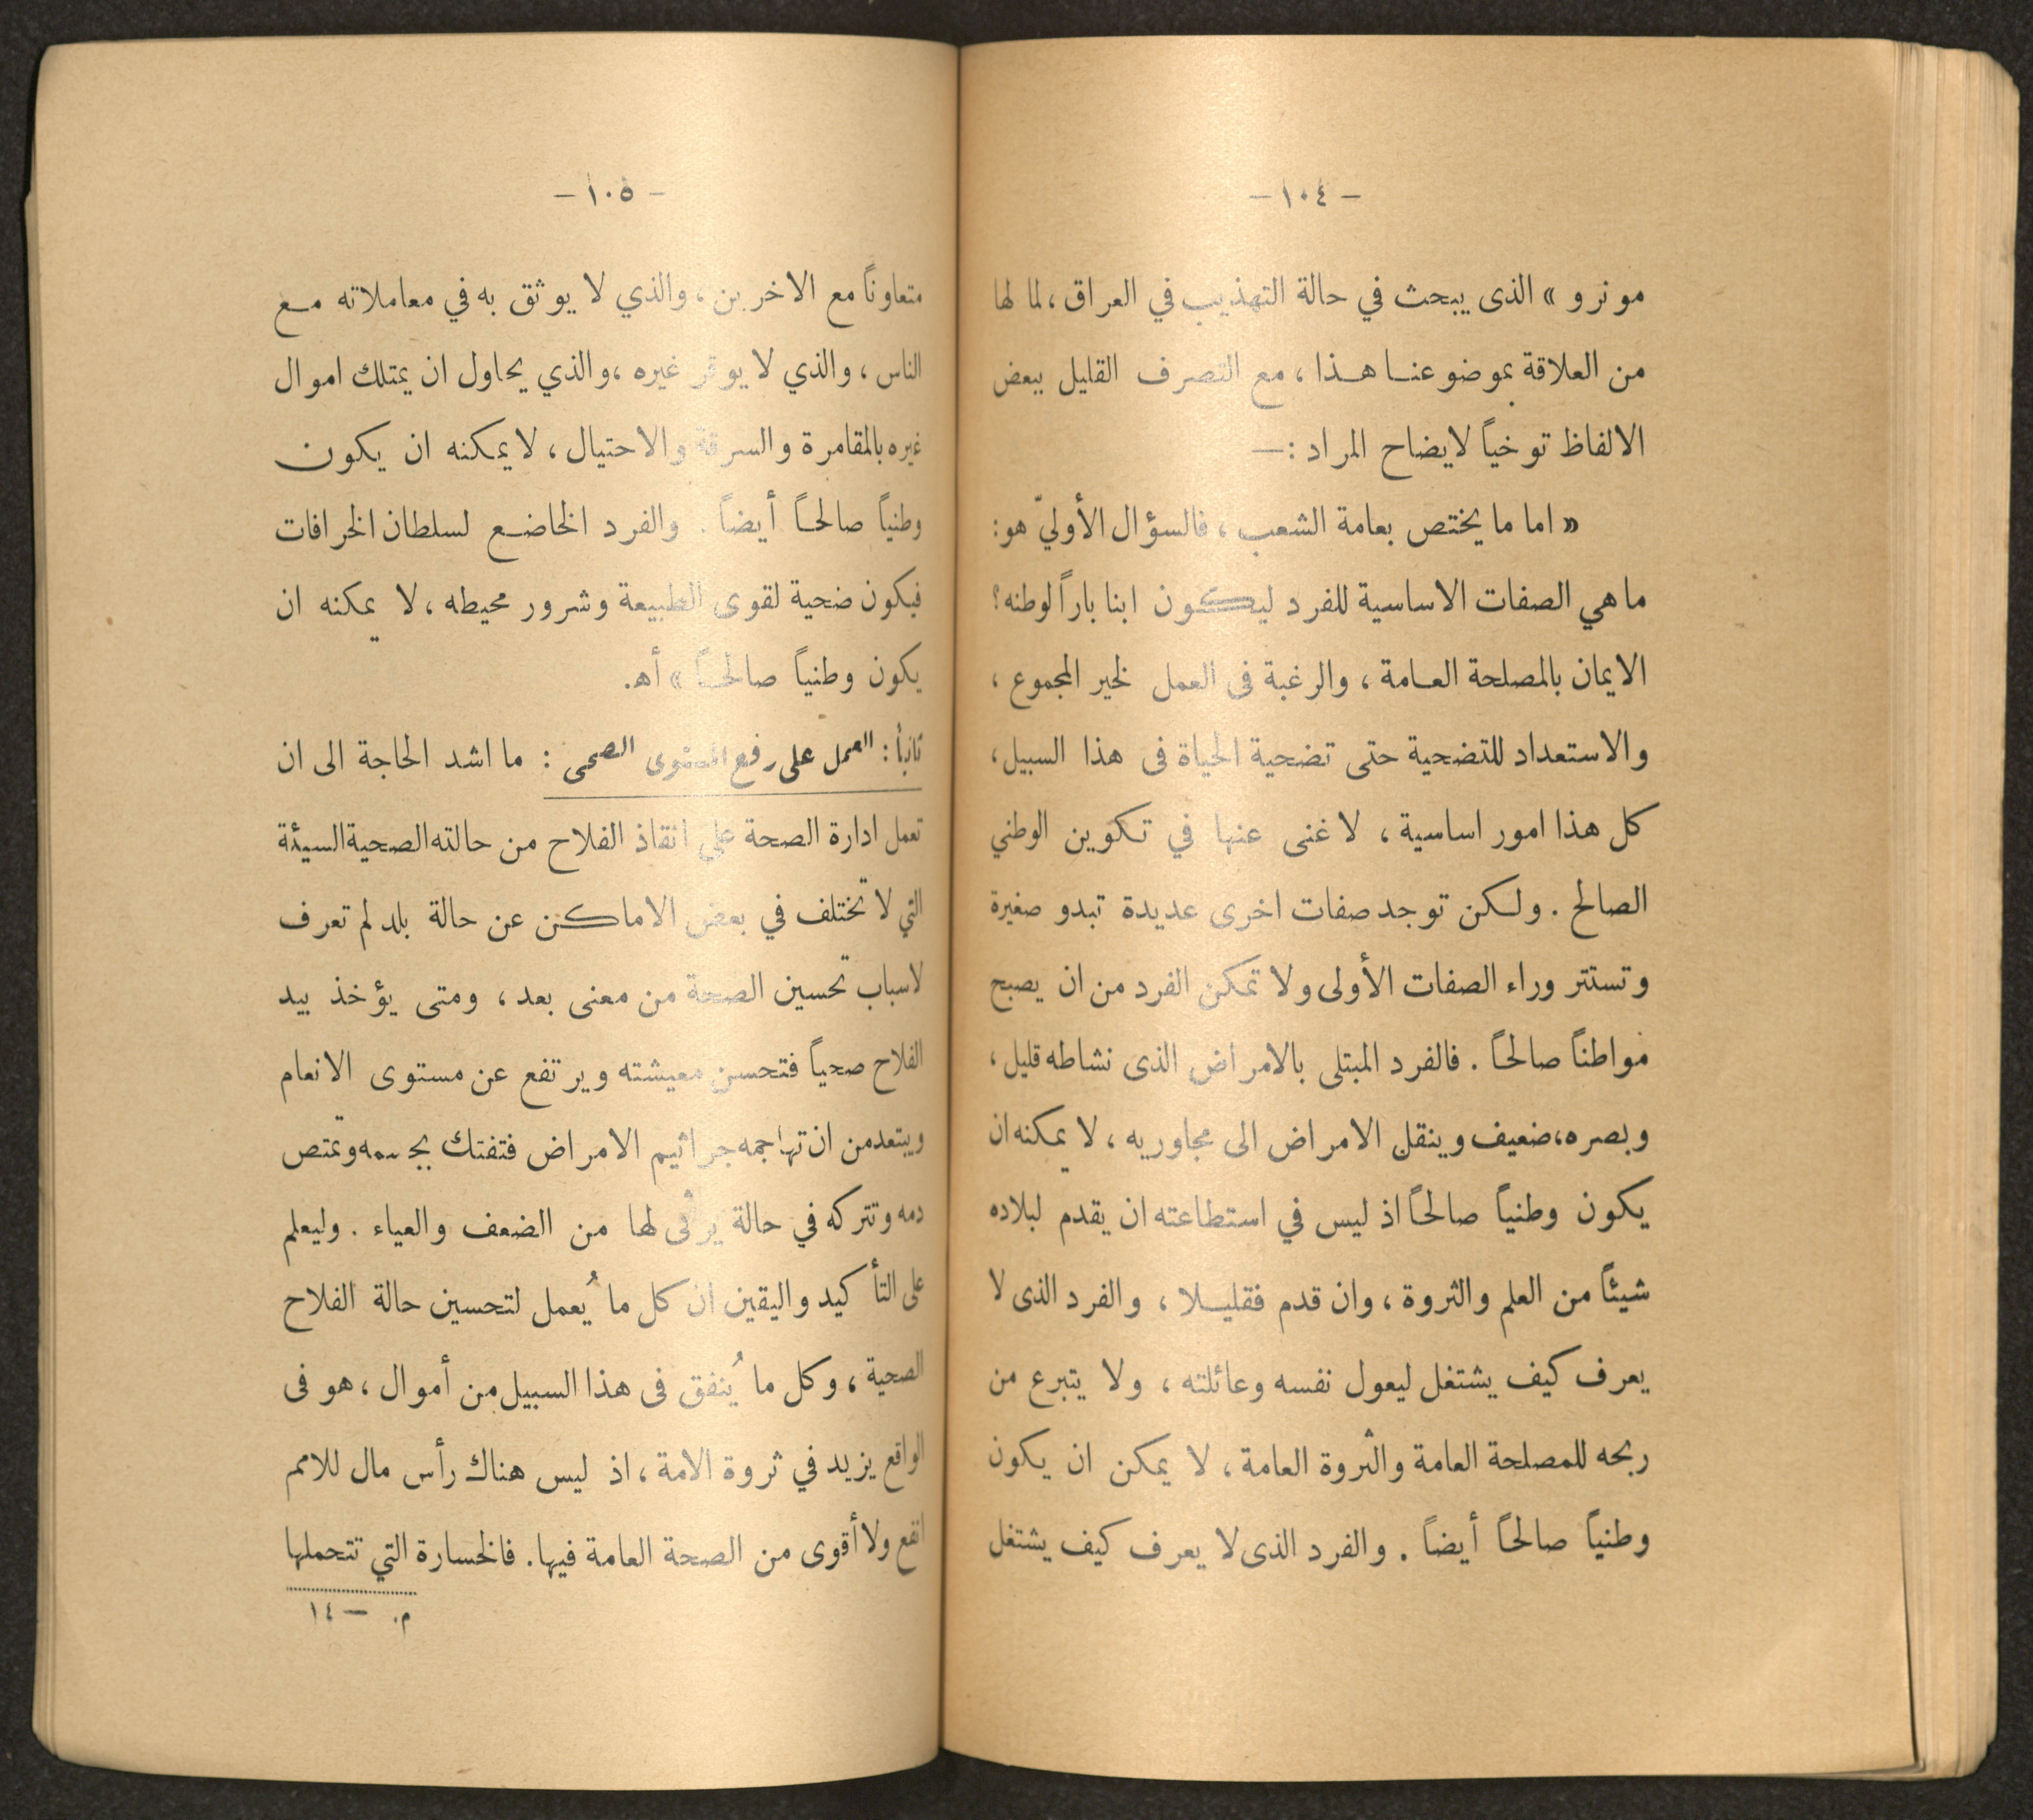 — ١٠٤ —
مونرو » الذى يبحث في حالة التهذيب في العراق ، لما لها
من العلاقة بموضوعنا هذا ، مع التصرف القليل ببعض
الالفاظ توخياً لايضاح المراد :—
« اما ما يختص بعامة الشعب ، فالسؤال الأوليّ هو :
ما هي الصفات الاساسية للفرد ليكون ابنا باراً لوطنه ؟
الايمان بالمصلحة العامة ، والرغبة فى العمل لخير المجموع ،
والاستعداد للتضحية حتى تضحية الحياة فى هذا السبيل ،
كل هذا امور اساسية ، لا غنى عنها في تكوين الوطني
الصالح . ولكن توجد صفات اخرى عديدة تبدو صغيرة
وتستتر وراء الصفات الأولى ولا تمكن الفرد من ان يصبح
مواطناً صالحاً . فالفرد المبتلى بالامراض الذى نشاطه قليل ،
وبصره ، ضعيف وينقل الامراض الى مجاوريه ، لا يمكنه ان
يكون وطنياً صالحاً اذ ليس في استطاعته ان يقدم لبلاده
شيئاً من العلم والثروة ، وان قدم فقليلا ، والفرد الذى لا
يعرف كيف يشتغل ليعول نفسه وعائلته ، ولا يتبرع من
ربحه للمصلحة العامة والثروة العامة ، لا يمكن ان يكون
وطنياً صالحاً أيضاً . والفرد الذى لا يعرف كيف يشتغل
— ١٠٥ —
متعاوناً مع الاخرين ، والذي لا يوثق به في معاملاته مع
الناس ، والذي لا يوقر غيره ، والذي يحاول ان يمتلك اموال
غيره بالمقامرة والسرقة والاحتيال ، لا يمكنه ان يكون
وطنياً صالحاً أيضاً . والفرد الخاضع لسلطان الخرافات
فيكون ضحية لقوى الطبيعة وشرور محيطه ، لا يمكنه ان
يكون وطنياً صالحاً » أهـ .
ثانياً : العمل على رفع المستوى الصحى : ما اشد الحاجة الى ان
تعمل ادارة الصحة على انقاذ الفلاح من حالته الصحية السيئة
التي لا تختلف في بعض الاماكن عن حالة بلد لم تعرف
لاسباب تحسين الصحة من معنى بعد ، ومتى يؤخذ بيد
الفلاح صحياً فتحسن معيشته ويرتفع عن مستوى الانعام
ويبتعد من ان تهاجمه جراثيم الامراض فتفتك بجسمه وتمتص
دمه وتتركه في حالة يرثى لها من الضعف والعياء . وليعلم
على التأكيد واليقين ان كل ما يُعمل لتحسين حالة الفلاح
الصحية ، وكل ما يُنفق فى هذا السبيل من أموال ، هو فى
الواقع يزيد في ثروة الامة ، اذ ليس هناك رأس مال للامم
انفع ولا أقوى من الصحة العامة فيها . فالخسارة التي تتحملها
م. — ١٤